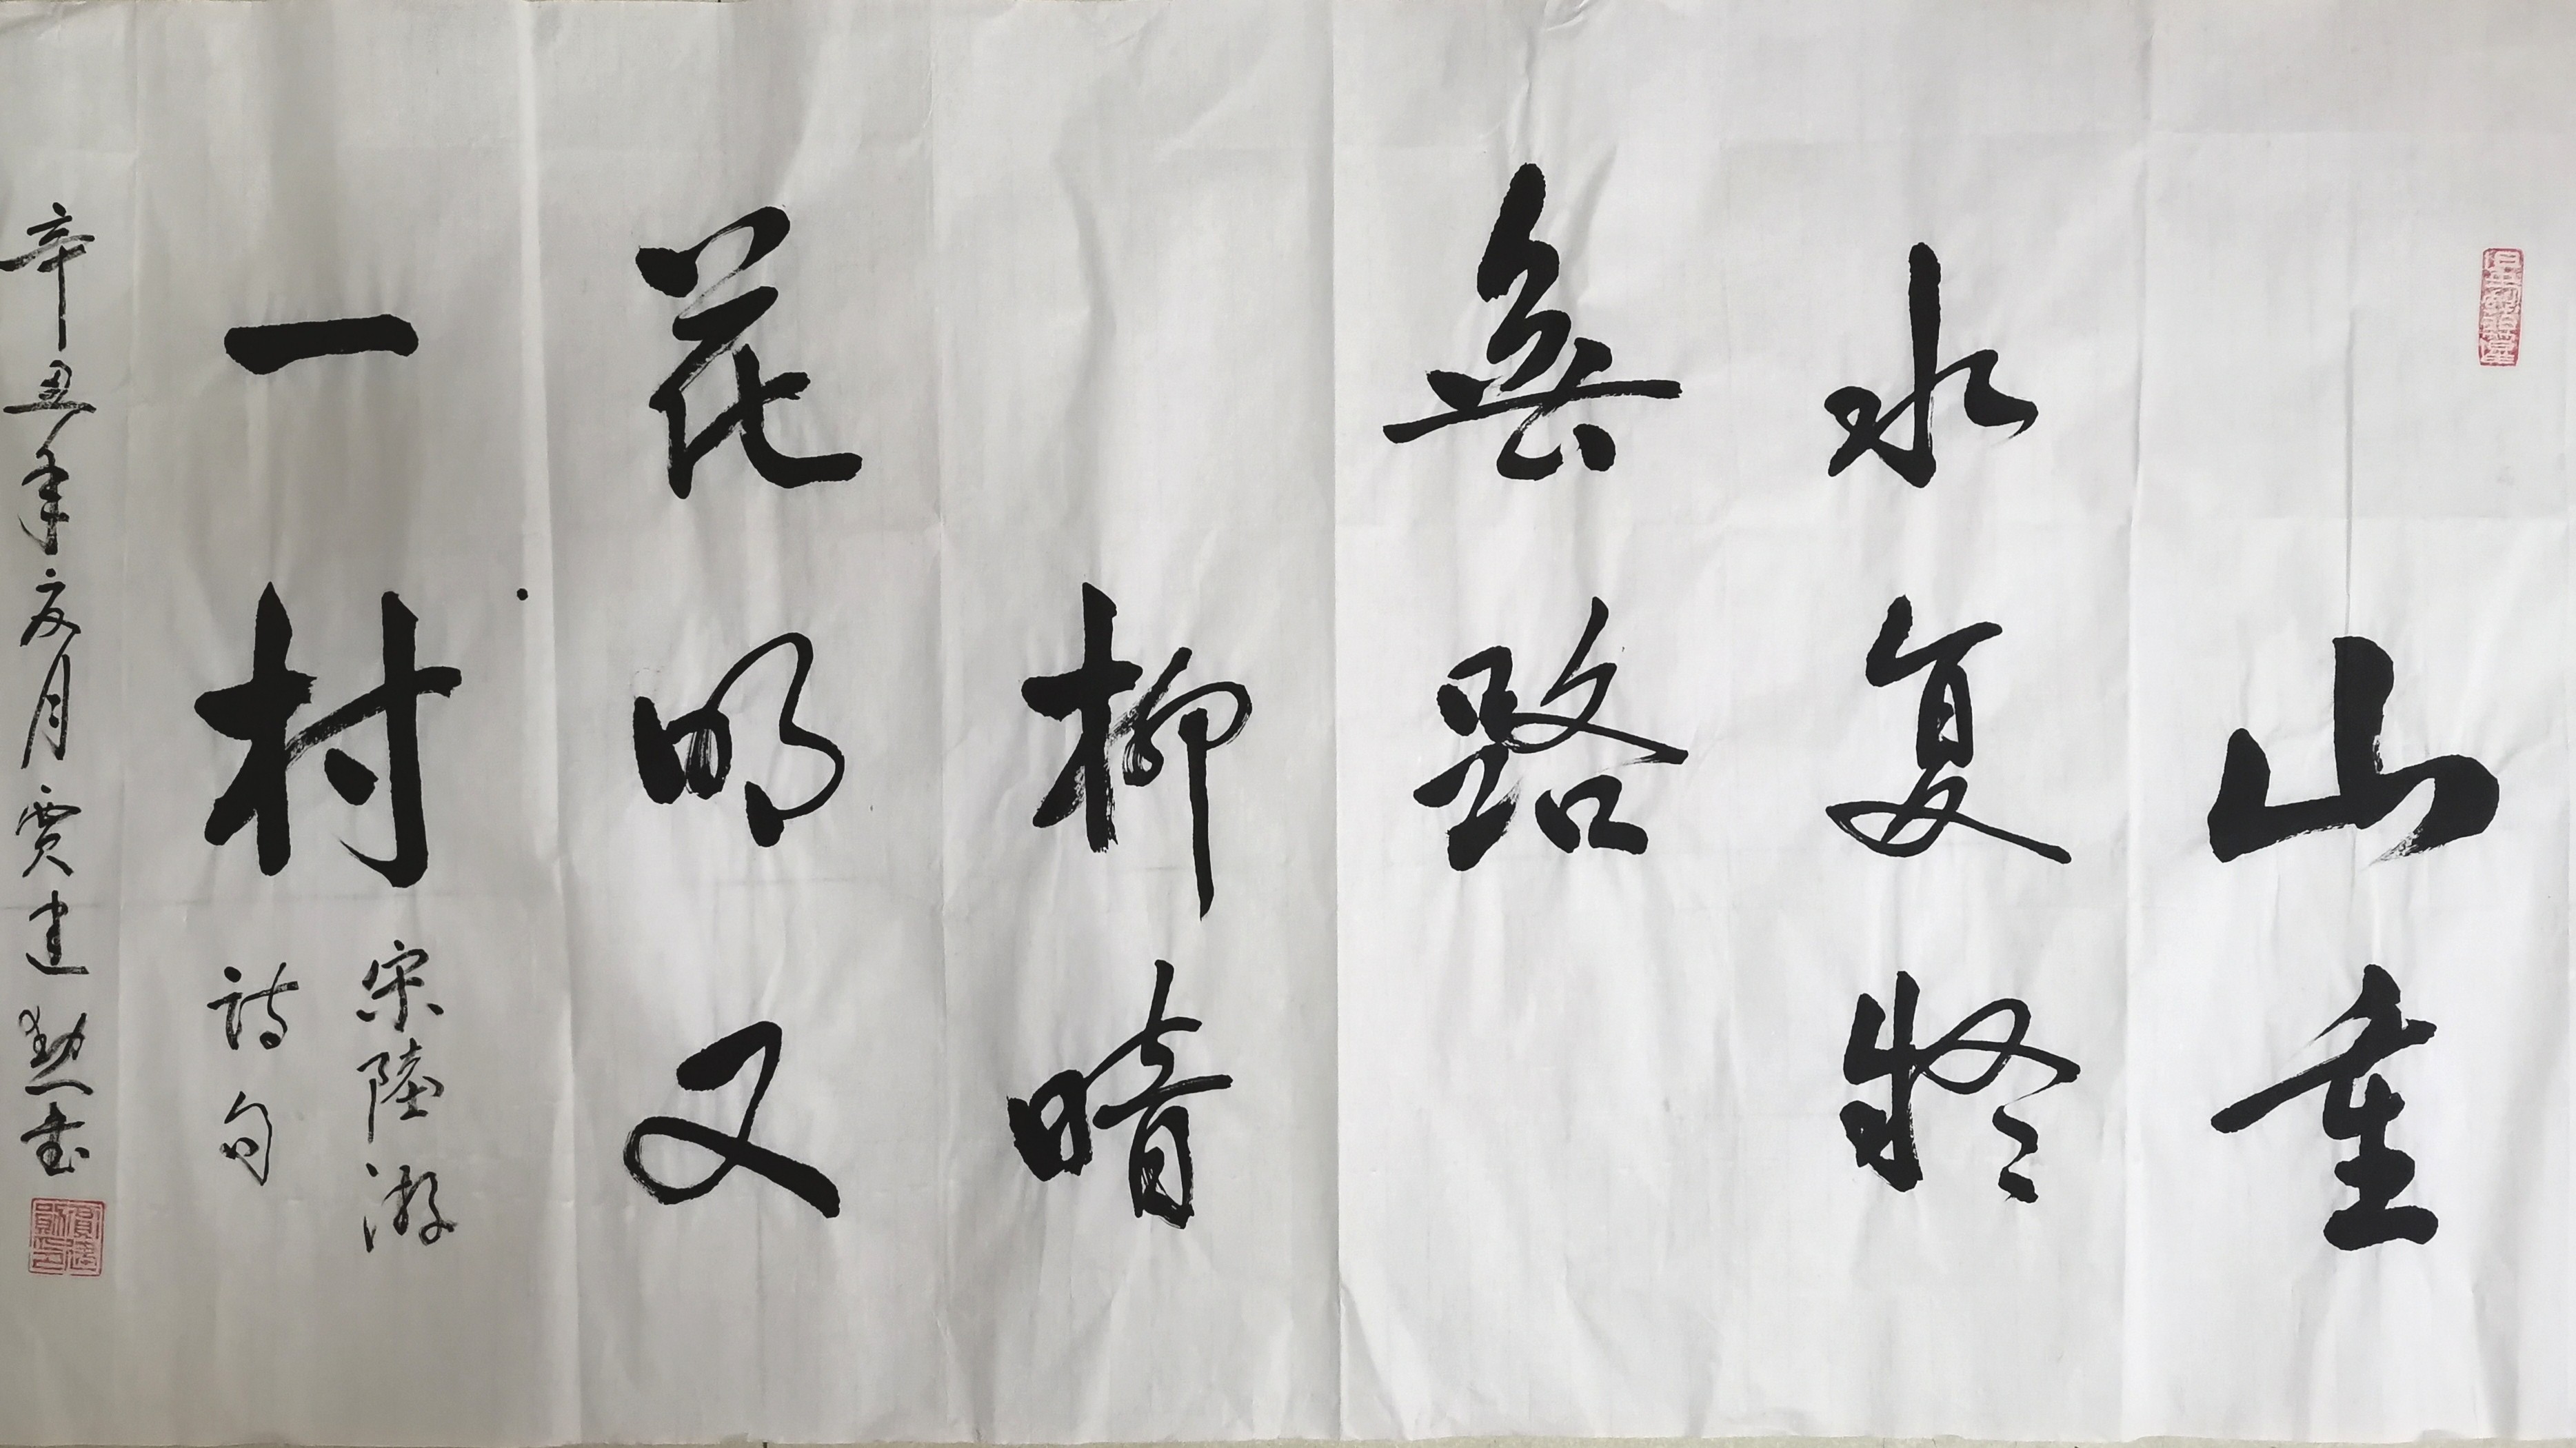 山重
水复疑
無路
柳暗
花明又
一村
宋陸游
詩句
辛丑年亥月賈建勳书